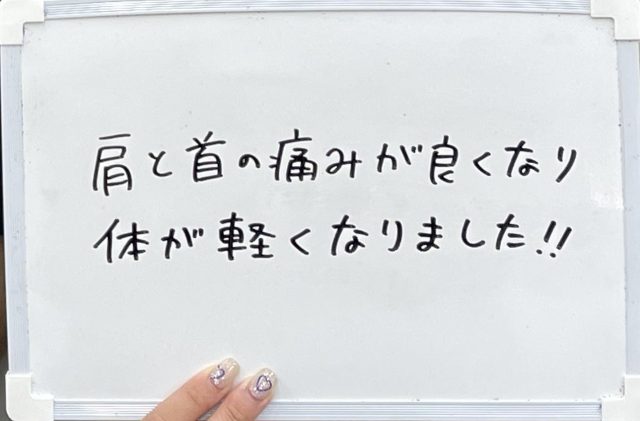 肩と首の痛みが良くなり
体が軽くなりました!!